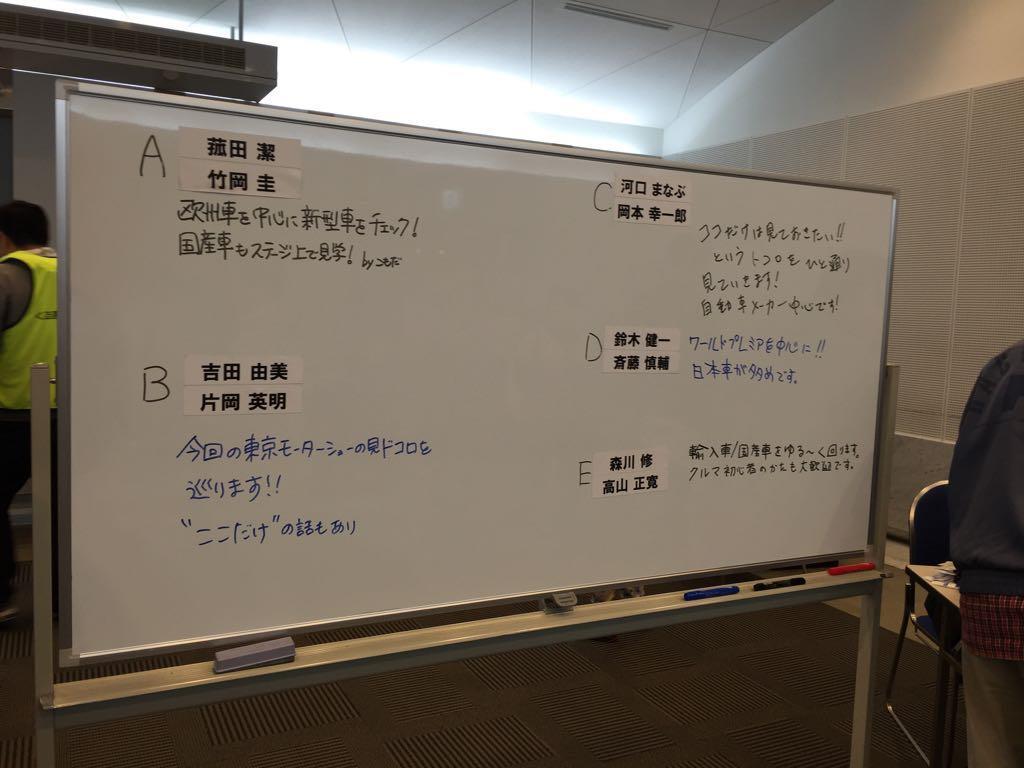 A
菰田 潔
竹岡 圭
欧州車を中心に新型車をチェック!
国産車もステージ上で見学! byこもだ
B
吉田 由美
片岡 英明
今回の東京モーターショーの見ドコロを
巡ります!!
"ここだけ"の話もあり
C
河口 まなぶ
岡本 幸一郎
ココだけは見ておきたい!!
というトコロをひと通り
見ていきます!
自動車メーカー中心です!
D
鈴木 健一
斉藤 慎輔
ワールドプレミアを中心に!!
日本車が多めです。
E
森川 修
高山 正寛
輸入車/国産車をゆる〜く回ります。
クルマ初心者のかたも大歓迎です。